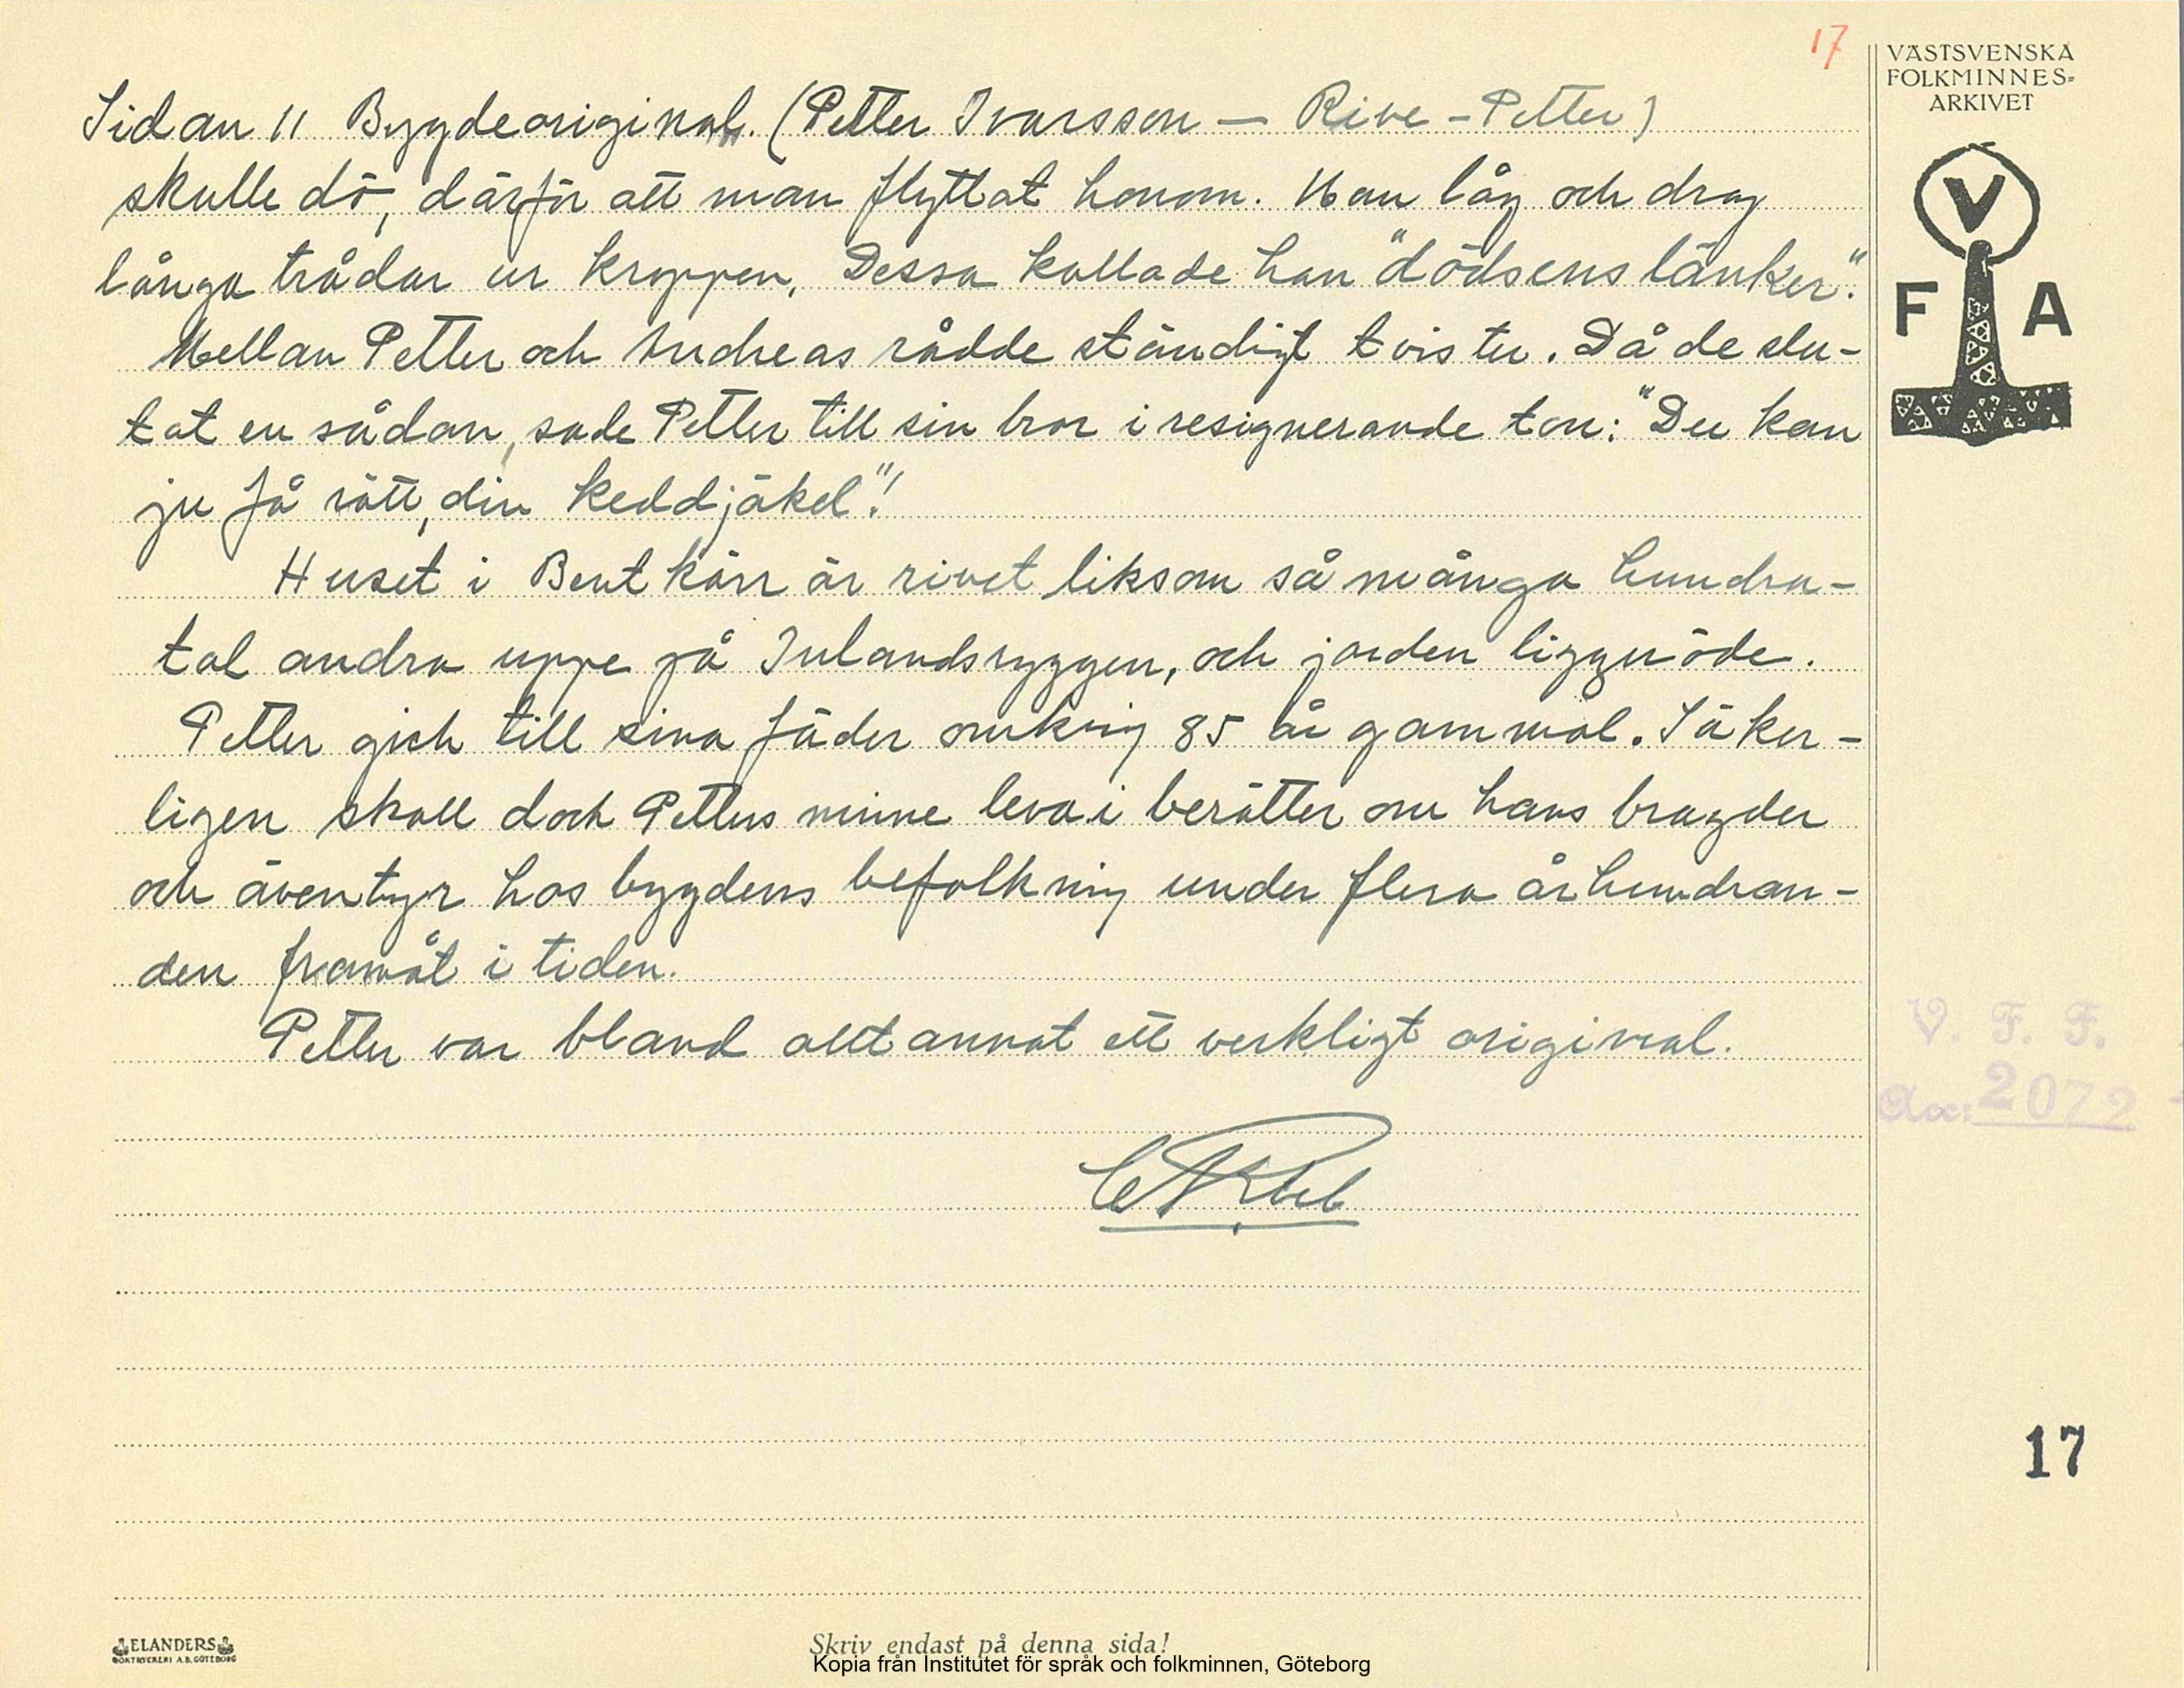 17
VÄSTSVENSKA
FOLKMINNES=
ARKIVET
V
F A
Sidan 11 Bygdeoriginal. (Petter Ivarsson — Rive-Petter)
skulle dö, därför att man flyttat honom. Han låg och drog
långa trådar ur kroppen. Dessa kallade han "dödsens länker".
Mellan Petter och Andreas rådde ständigt tvister. Då de slu-
tat en sådan, sade Petter till sin bror i resignerande ton: "Du kan
ju få rätt, din keddjäkel"!
Huset i Bentkärr är rivet liksom så många hundra-
tal andra uppe på Inlandsryggen, och jorden ligger öde.
Petter gick till sina fäder omkring 85 år gammal. Säker-
ligen skall dock Petters minne leva i berätter om hans bragder
och äventyr hos bygdens befolkning under flera århundran-
den framåt i tiden.
Petter var bland allt annat ett verkligt original.
V. F. F.
Acc: 2072
17
ELANDERS
BOKTRYCKERI A.B. GÖTEBORG
Skriv endast på denna sida!
Kopia från Institutet för språk och folkminnen, Göteborg